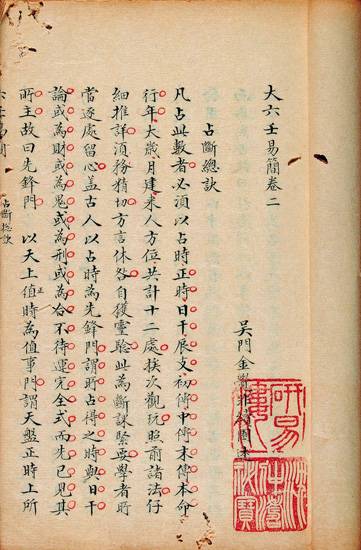 大六壬易簡卷二
吳門金
占斷總訣
凡占此數者必須以占時正時日干辰支初傳中傳末傳本命
行年大歲月建來人方位共計十二處挨次觀玩照前諸法仔
細推詳須務精切方言休咎自獲靈驗此為斷課緊要學者所
當逐處留心盖古人以占時為先鋒門謂所占得之時與日干
論或為財或為鬼或為刑或為合不待運完全式而先已見其
所主故曰先鋒門 以天上值時為值事門謂天盤正時上所
占斷總訣